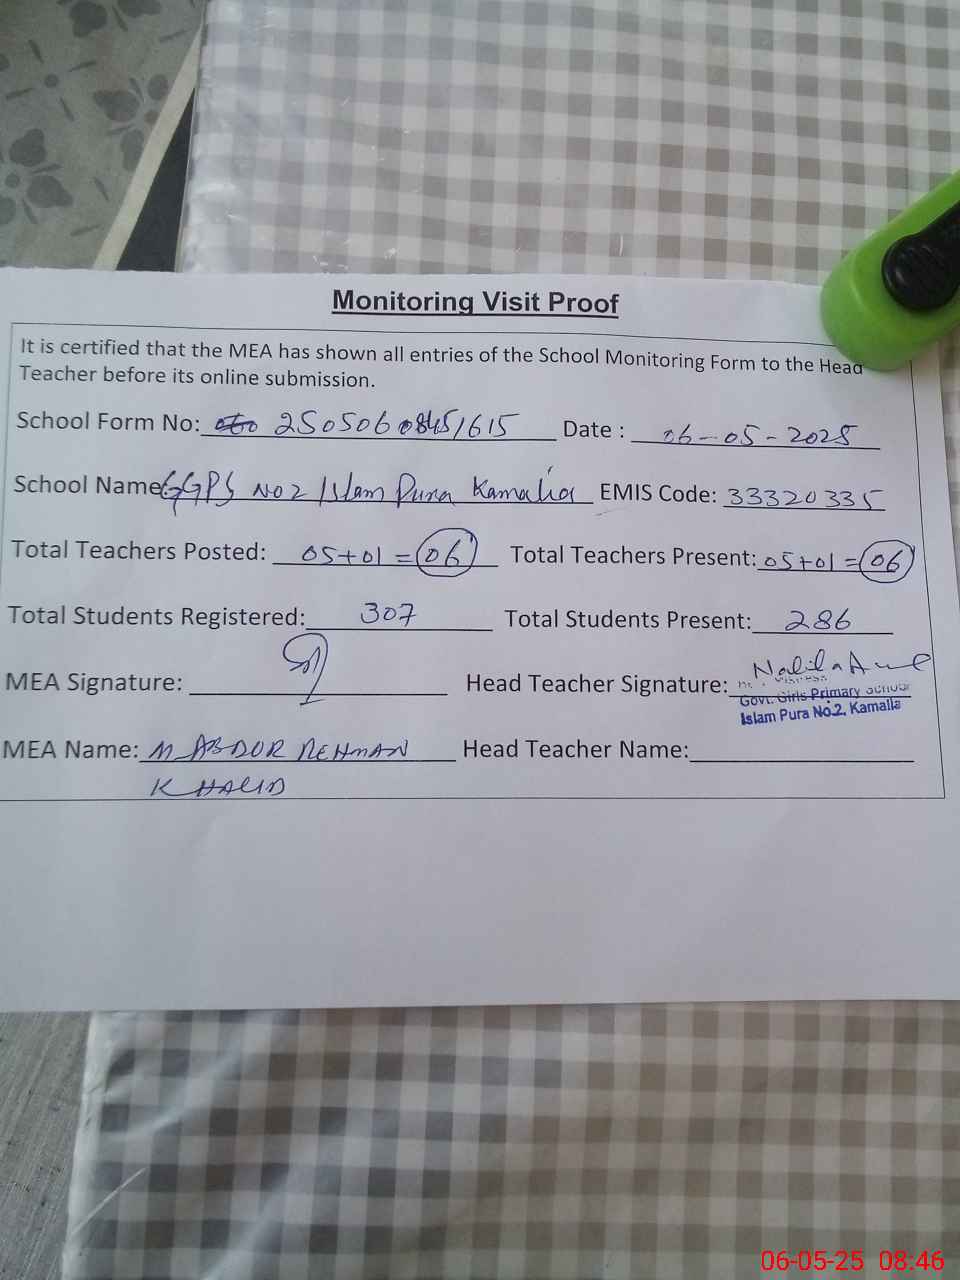 Monitoring Visit Proof
It is certified that the MEA has shown all entries of the School Monitoring Form to the Head
Teacher before its online submission.
School Form No: 25050608451615 Date : 06-05-2025
School Name: GGPS No 2 Islam Pura Kamalia EMIS Code: 33320335
Total Teachers Posted: 05+01=06 Total Teachers Present: 05+01=06
Total Students Registered: 307 Total Students Present: 286
MEA Signature: Head Teacher Signature: Nabila
Govt. Girls Primary School
Islam Pura No.2, Kamalia
MEA Name: M ABDUR REHMAN Head Teacher Name:
KHALID
06-05-25 08:46